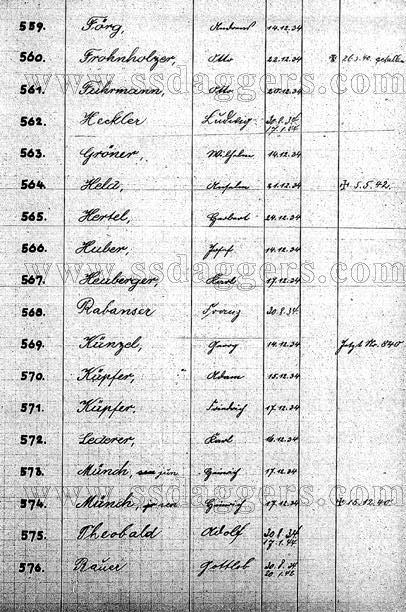 559. Förg, Andreas 14.12.34
560. Frohnholzer, Otto 22.12.34 ✠ 26.3.40. gefallen
www.ssdaggers.com
561. Fuhrmann, Otto 20.12.34
562. Heckler Ludwig 30.8.34 17.1.44
563. Gröner, Wilhelm 14.12.34
564. Held, Anselm 21.12.34 ✠ 5.5.42.
565. Hertel, Herbert 24.12.34
566. Huber, Josef 14.12.34
www.ssdaggers.com
567. Heuberger, Karl 17.12.34
568. Rabanser Franz 30.8.34.
569. Künzel, Georg 14.12.34 Jetzt Nr. 840
570. Küpfer, Adam 15.12.34
571. Küpfer, Friedrich 17.12.34
572. Lederer, Karl 16.12.34
573. Münch, jun Heinrich 17.12.34
www.ssdaggers.com
574. Münch, sen Heinrich 17.12.34 ✠ 15.12.40.
575. Theobald Adolf 30.8.34 17.1.44
576. Rauer Gottlob 30.8.34